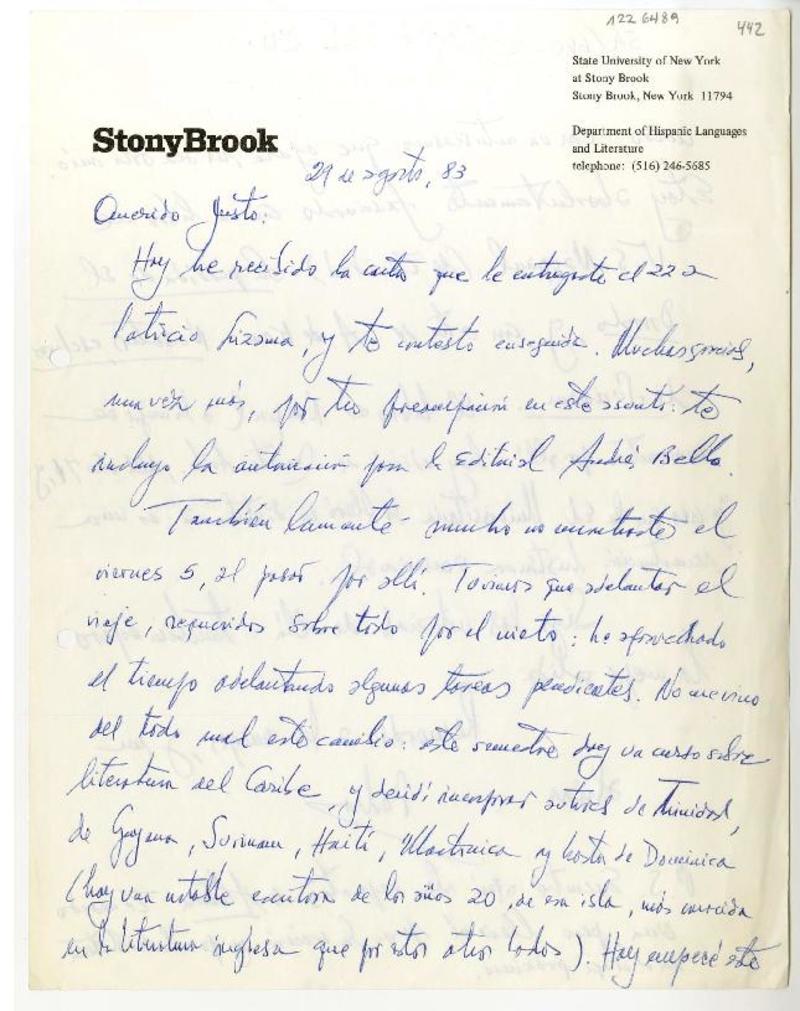 1226489
442
State University of New York
at Stony Brook
Stony Brook, New York 11794
StonyBrook
Department of Hispanic Languages
and Literature
telephone: (516) 246-5685
29 de agosto, 83
Querido Justo:
Hoy he recibido la carta que le entregaste el 22 a
Patricio Lizama, y te contesto enseguida. Muchas gracias,
una vez más, por tu preocupación en este asunto: te
incluyo la autorización para la Editorial Andrés Bello.
También lamenté mucho no encontrarte el
viernes 5, al pasar por allí. Tuvimos que adelantar el
viaje, requeridos sobre todo por el nieto: he aprovechado
el tiempo adelantando algunas tareas pendientes. No me vino
del todo mal este cambio: este semestre doy un curso sobre
literatura del Caribe, y decidí incorporar autores de Trinidad,
de Guyana, Surinam, Haití, Martinica y hasta de Dominica
(hay una notable escritora de los años 20, de esa isla, más conocida
en la literatura inglesa que por estos otros lados). Hoy empecé este